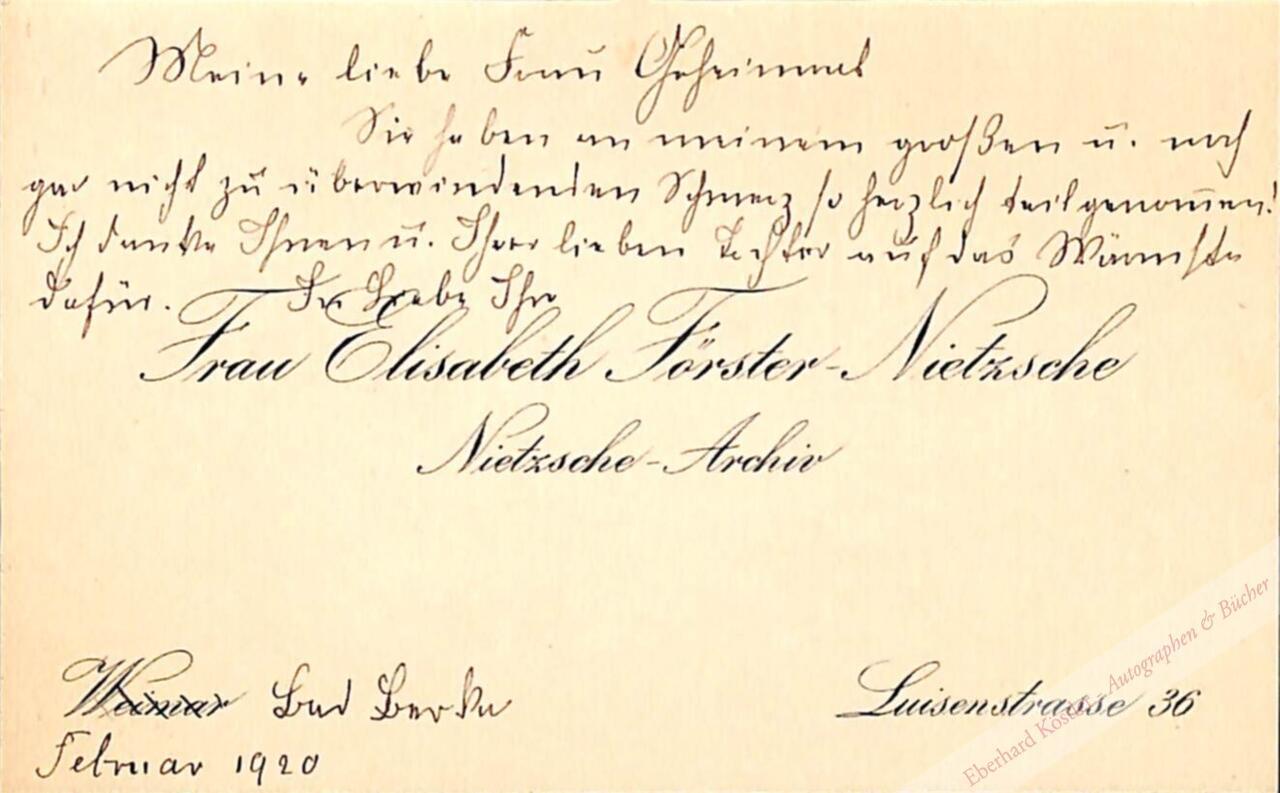 Meine liebe Frau Geheimrat
Sie haben an meinem großen u. noch
gar nicht zu überwindenden Schmerz so herzlich teilgenom̅en!
Ich danke Ihnen u. Ihrer lieben Tochter auf das Wärmste
dafür. In Liebe Ihre
Frau Elisabeth Förster-Nietzsche
Nietzsche-Archiv
Weimar Bad Berka
Luisenstrasse 36
Februar 1920
Eberhard Köstler Autographen & Bücher